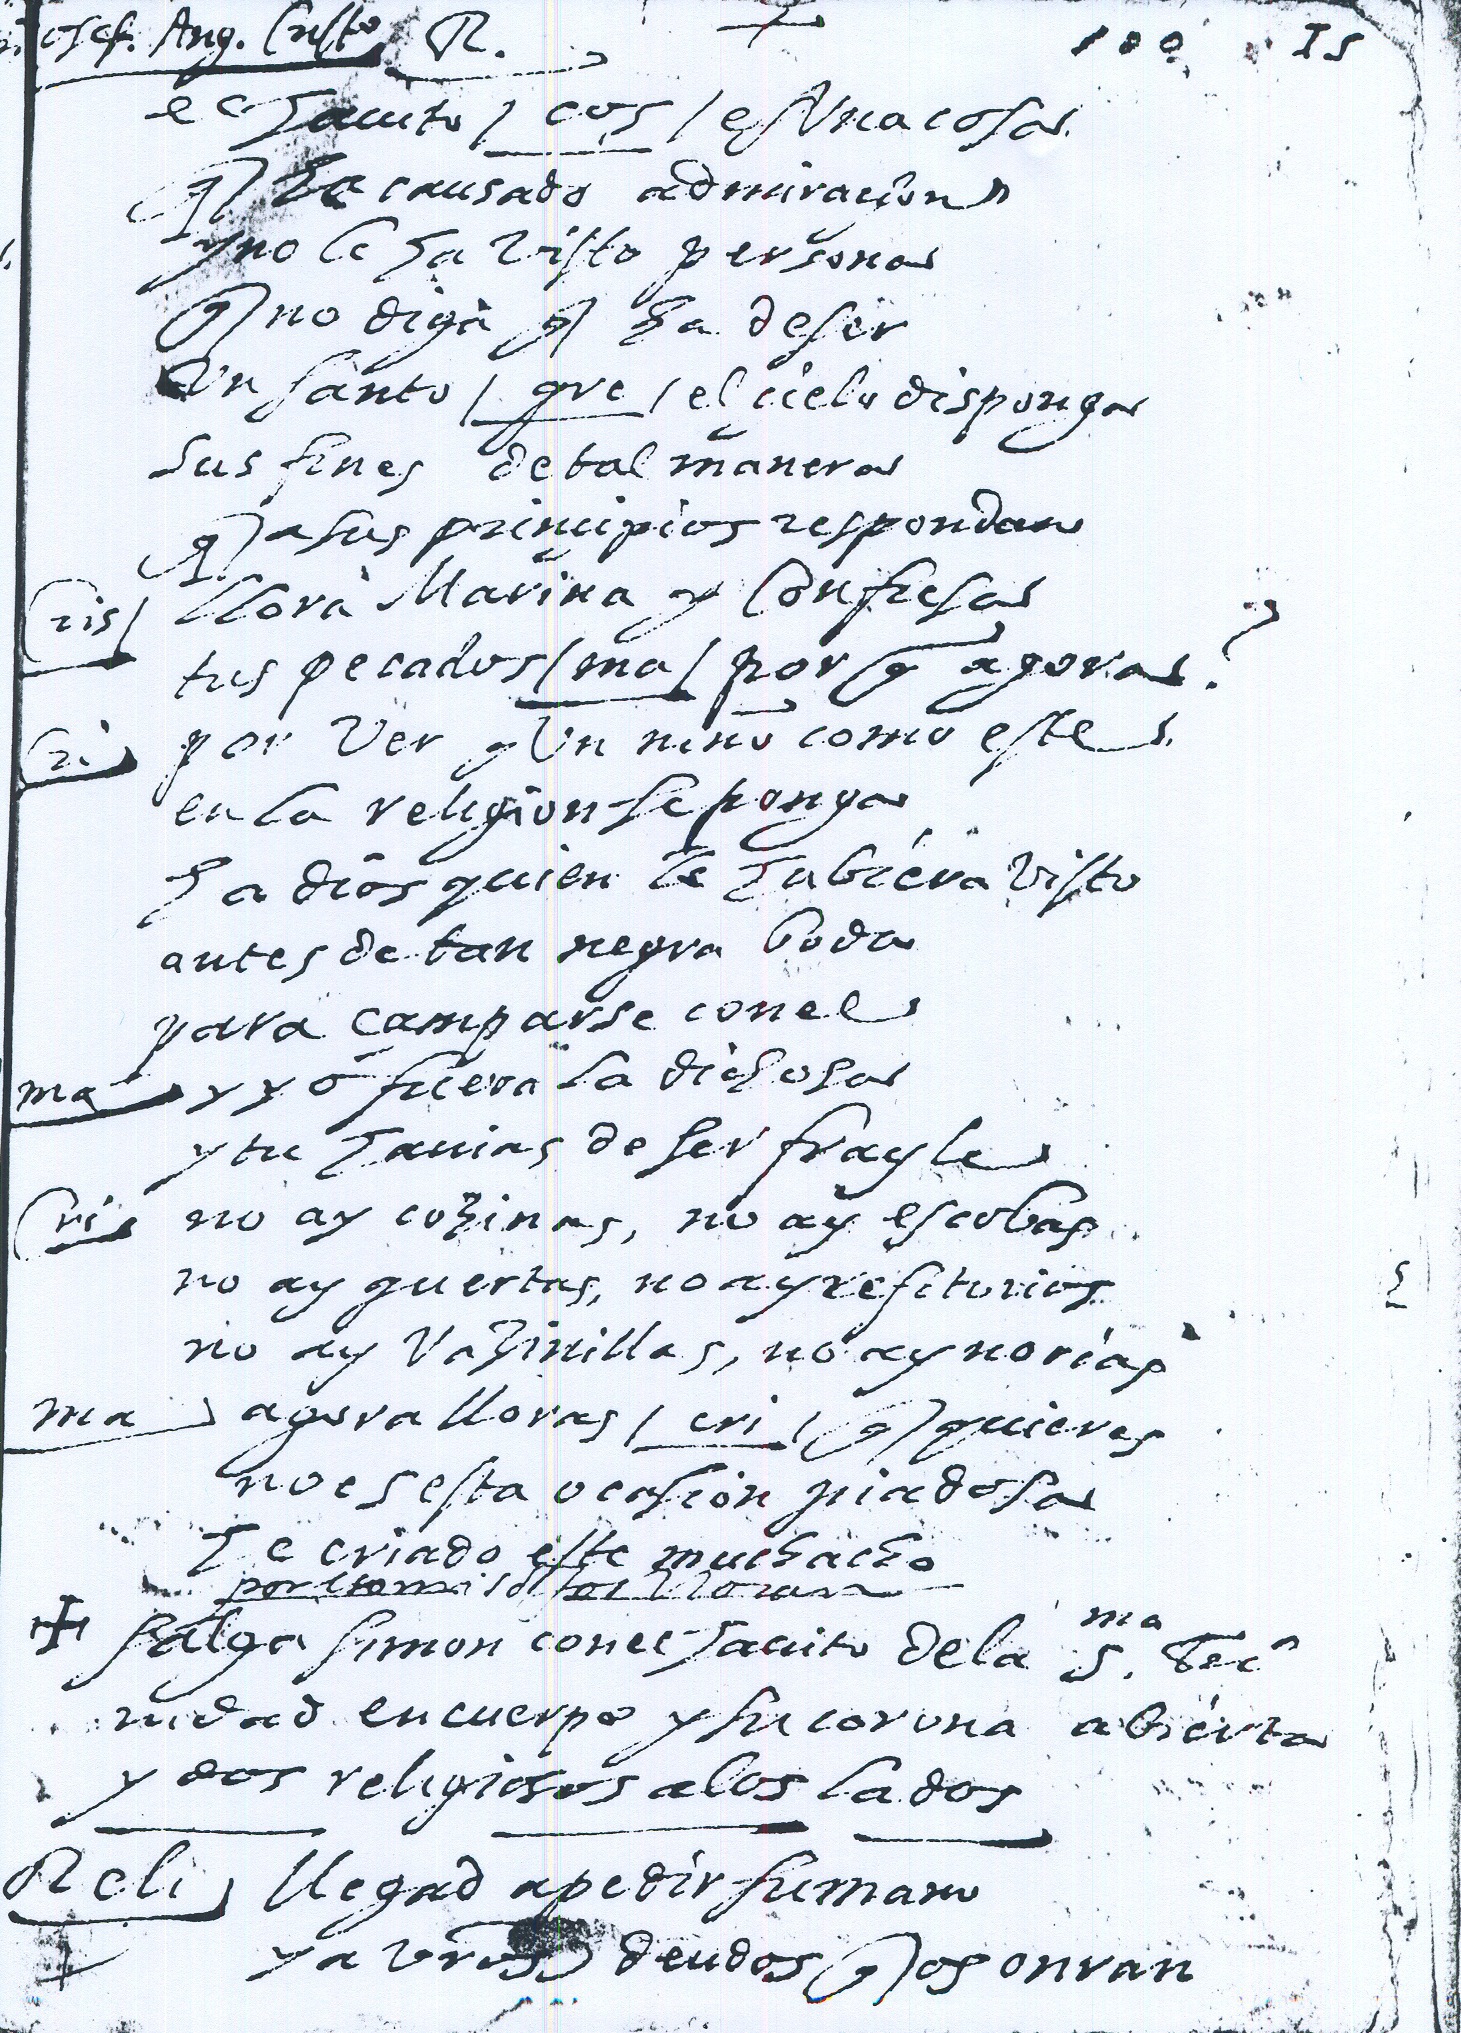 Josef. Ang. Custo R. 100 15
el havito / cos / es Vna cosa
q ha causado admiracion
y no le ha visto persona
q no diga q ha de ser
Vn santo / que / el cielo disponga
sus fines de tal manera
q a sus principios respondan
Cris / llora Marina y Confiesa
tus pecados / ma / por q agora?
Cri por Ver q Vn niño como este
en la religion se ponga
ha dios quien le hubiera visto
antes de tan negra boda
para camparse con el
ma y yo fuera la dichosa
y tu havias de ser frayle
Cri no ay cozinas, no ay escobas
no ay guertas, no ay refitorios
no ay Vazinillas, no ay norias
ma agora lloras / cri / q quieres
no es esta ocasion piadosa
he criado este muchacho
salga simon con el havito de la s.ma Tri
nidad en cuerpo y su corona abierta
y dos religiosos a los lados
Reli llegad a pedir su mano
y a vros deudos q os onran